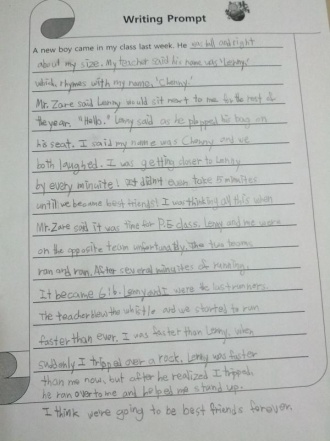 Writing Prompt
A new boy came in my class last week. He was tall and right
about my size. My teacher said his name was 'Lenny'
which rhymes with my name, 'Chenny'.
Mr. Zare said Lenny would sit next to me for the rest of
the year. "Hello." Lenny said as he plopped his bag on
his seat. I said my name was Chenny and we
both laughed. I was getting closer to Lenny
by every minuite! It didn't even take 5 minuites
until we became best friends! I was thinking all this when
Mr. Zare said it was time for P.E class. Lenny and me were
on the opposite team unfortunatly. The two teams
ran and ran. After several minuites of running,
It became 6:6. Lenny and I were the last runners.
The teacher blew the whistle and we started to run
faster than ever. I was faster than Lenny, when
suddenly I tripped over a rock. Lenny was faster
than me now, but after he realized I tripped,
he ran over to me and helped me stand up.
I think we're going to be best friends forever.